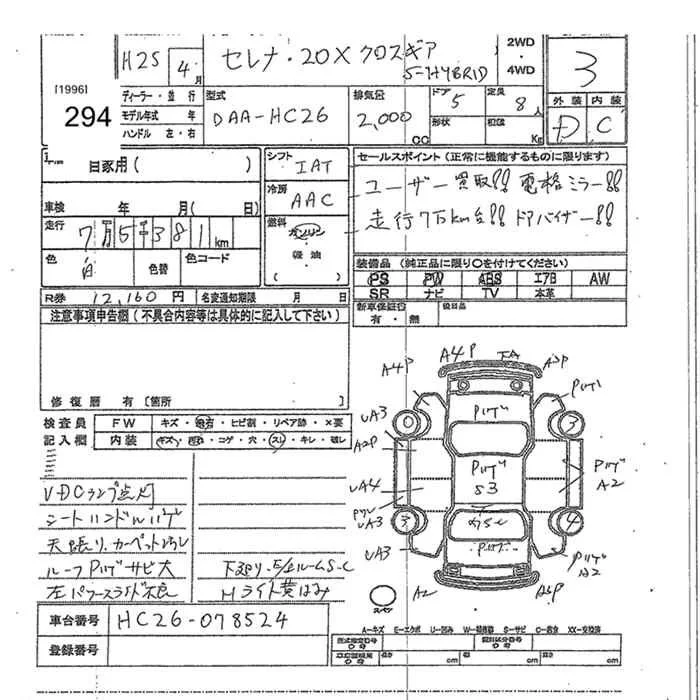 [1996]
294
H25 4月
セレナ・20X クロスギア
S-HYBRID
2WD
・
4WD
3
ディーラー・並行
モデル年式 年
ハンドル 左・右
型式
DAA-HC26
排気量
2,000
CC
ドア
5
形状
定員
8人
Kg
外装 内装
D C
自家用( )
シフト
IAT
冷房
AAC
車検 年 月( 日)
走行
7万5千381km
燃料
ガソリン
軽油
( )
色
白
色替
色コード
セールスポイント(正常に機能するものに限ります)
ユーザー買取!! 電格ミラー!!
走行7万km台!! ドアバイザー!!
装備品(純正品に限り○を付けてください)
PS PW ABS エアB AW
SR ナビ TV 本革
R券 12,160円 名変通知期限 月 日
新車保証書
有・無
注意事項申告欄(不具合内容等は具体的に記入して下さい)
修復歴 有[箇所 ]
検査員
記入欄
FW キズ・飛石・ヒビ割・リペア跡・×要
内装 キズ・汚れ・コゲ・穴・スレ・キレ・破レ
VDCランプ点灯
シートハンドルハゲ
天張り、カーペット汚レ
ルーフPハゲサビ大
左パワースライド不良
下廻り、
ルームS-C
Hライト黄ばみ
A4P A4P
Pハゲ
UA3
A2P
UA4
UA3
UA3
A2
Pハゲ
Pハゲ
S3
Pハゲ
3
3
4
Pハゲ
A2
Pハゲ
A2
スペア
車台番号 HC26-078524
登録番号
A-キズ E-エクボ U-凹み W-補修跡 S-サビ C-腐食 XX-交換済
cm cm cm